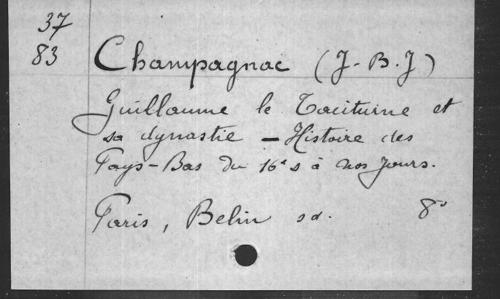 37
83
Champagnac (J-B-J)
Guillaume le Taciturne et
sa dynastie - Histoire des
Pays-Bas du 16e s à nos jours.
Paris, Belin sd. 8°